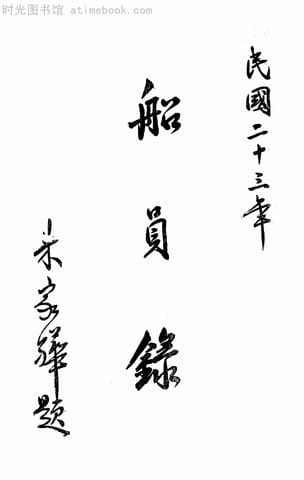 时光图书馆 atimebook.com
民國二十三年
船員錄
朱家驊題